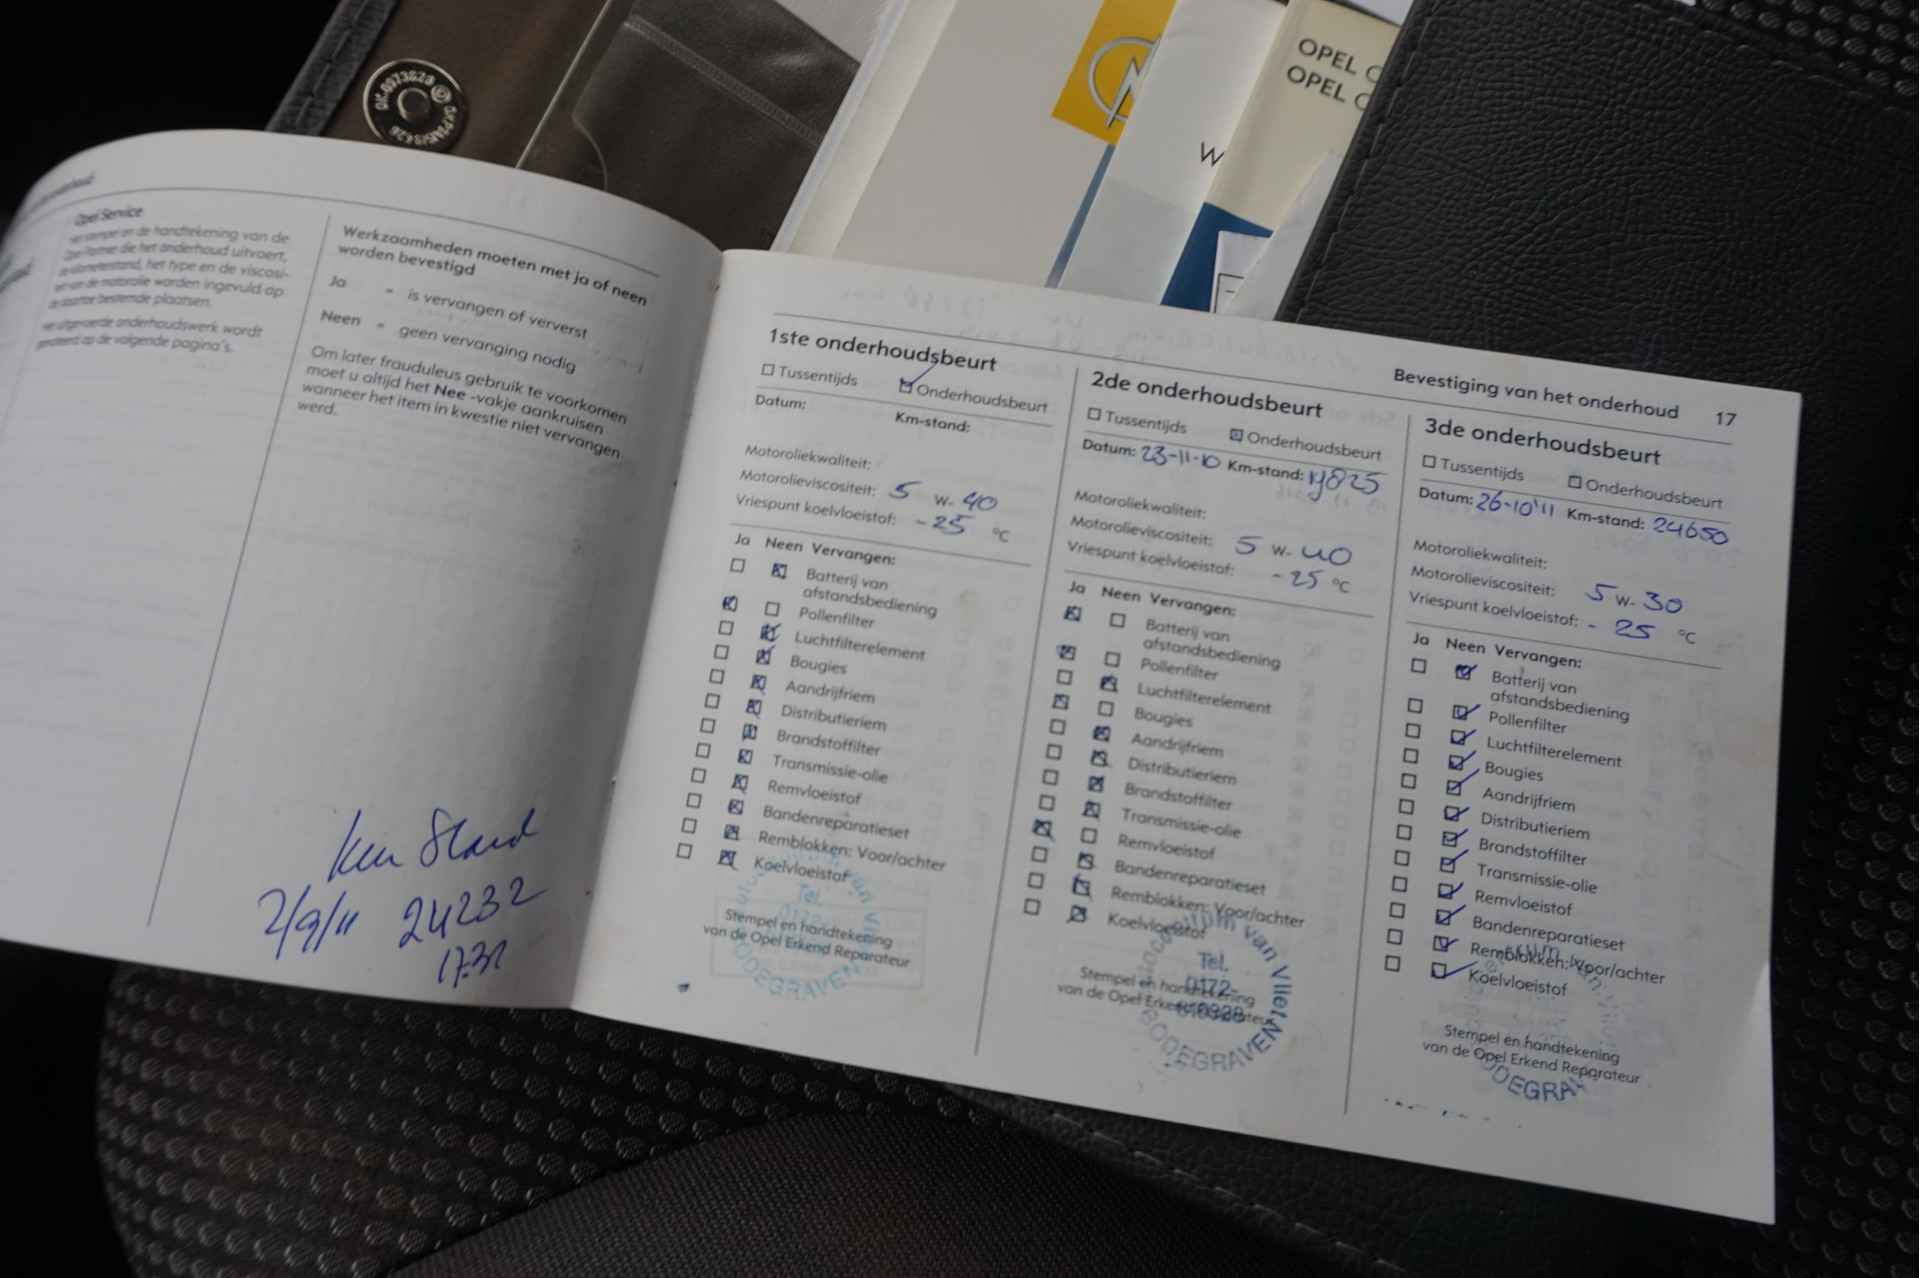 OPEL
OPEL
W
Opel Service
handtekening van de
Opel Partner die het onderhoud uitvoert,
het type en de viscosi-
motorolie worden ingevuld op
bestemde plaatsen.
onderhoudswerk wordt
op de volgende pagina's.
Werkzaamheden moeten met ja of neen
worden bevestigd
Ja = is vervangen of ververst
Neen = geen vervanging nodig
Om later frauduleus gebruik te voorkomen
moet u altijd het Nee -vakje aankruisen
wanneer het item in kwestie niet vervangen
werd.
Km Stand
7/9/11 24232
Bevestiging van het onderhoud 17
1ste onderhoudsbeurt
Tussentijds Onderhoudsbeurt
Datum: Km-stand:
Motoroliekwaliteit:
Motorolieviscositeit: 5 W- 40
Vriespunt koelvloeistof: - 25 °C
Ja Neen Vervangen:
Batterij van
afstandsbediening
Pollenfilter
Luchtfilterelement
Bougies
Aandrijfriem
Distributieriem
Brandstoffilter
Transmissie-olie
Remvloeistof
Bandenreparatieset
Remblokken: Voor/achter
Koelvloeistof
Tel.
0172-
Stempel en handtekening
van de Opel Erkend Reparateur
2de onderhoudsbeurt
Tussentijds Onderhoudsbeurt
Datum: 23-11-10 Km-stand: 19825
Motoroliekwaliteit:
Motorolieviscositeit: 5 W- 40
Vriespunt koelvloeistof: - 25 °C
Ja Neen Vervangen:
Batterij van
afstandsbediening
Pollenfilter
Luchtfilterelement
Bougies
Aandrijfriem
Distributieriem
Brandstoffilter
Transmissie-olie
Remvloeistof
Bandenreparatieset
Remblokken: Voor/achter
Koelvloeistof
van Vliet
Tel.
0172-
BODEGRAVEN
Stempel en handtekening
van de Opel Erkend Reparateur
3de onderhoudsbeurt
Tussentijds Onderhoudsbeurt
Datum: 26-10'11 Km-stand: 24650
Motoroliekwaliteit:
Motorolieviscositeit: 5 W- 30
Vriespunt koelvloeistof: - 25 °C
Ja Neen Vervangen:
Batterij van
afstandsbediening
Pollenfilter
Luchtfilterelement
Bougies
Aandrijfriem
Distributieriem
Brandstoffilter
Transmissie-olie
Remvloeistof
Bandenreparatieset
Remblokken: Voor/achter
Koelvloeistof
Stempel en handtekening
van de Opel Erkend Reparateur